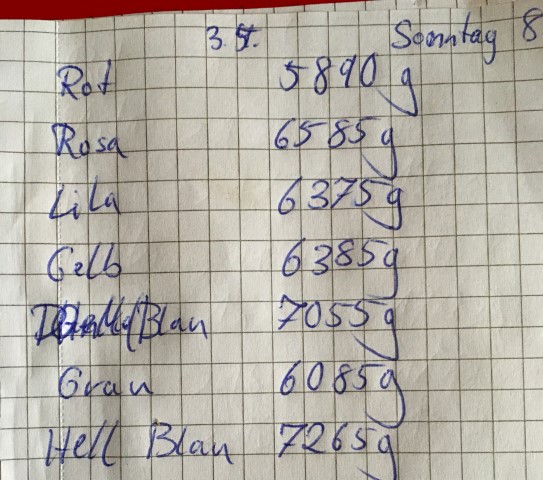 3.5. Sonntag 8
Rot 5890 g
Rosa 6585g
Lila 6375g
Gelb 6385g
Blau 7055g
Grau 6085g
Hell Blau 7265g